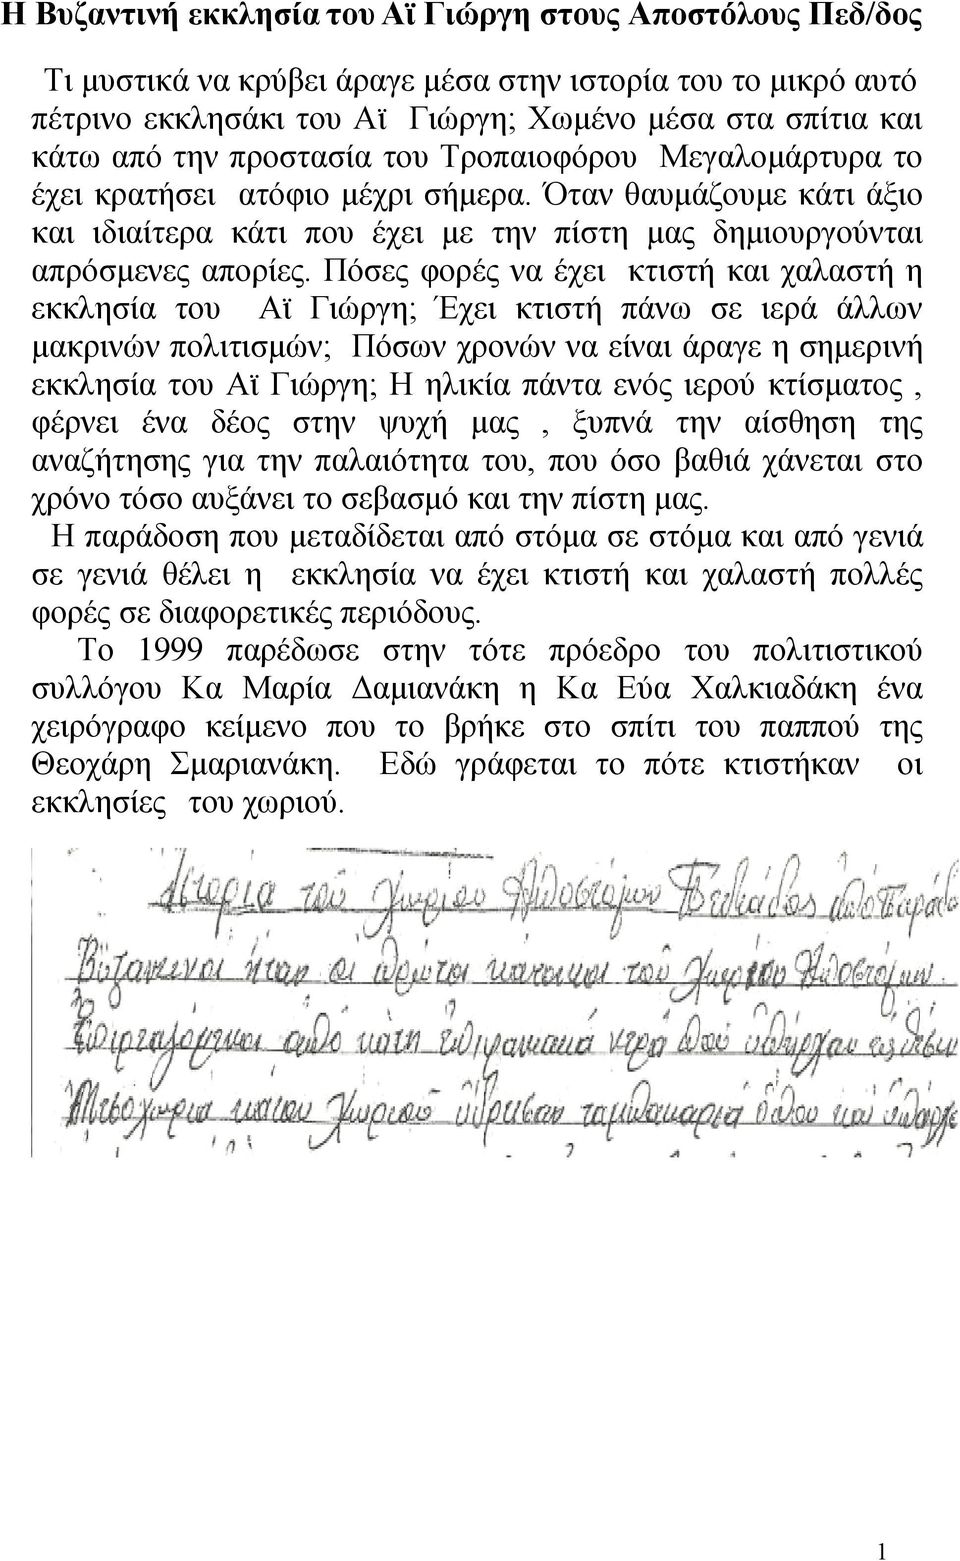 Η Βυζαντινή εκκλησία του Αϊ Γιώργη στους Αποστόλους Πεδ/δος
Τι μυστικά να κρύβει άραγε μέσα στην ιστορία του το μικρό αυτό
πέτρινο εκκλησάκι του Αϊ Γιώργη; Χωμένο μέσα στα σπίτια και
κάτω από την προστασία του Τροπαιοφόρου Μεγαλομάρτυρα το
έχει κρατήσει ατόφιο μέχρι σήμερα. Όταν θαυμάζουμε κάτι άξιο
και ιδιαίτερα κάτι που έχει με την πίστη μας δημιουργούνται
απρόσμενες απορίες. Πόσες φορές να έχει κτιστή και χαλαστή η
εκκλησία του Αϊ Γιώργη; Έχει κτιστή πάνω σε ιερά άλλων
μακρινών πολιτισμών; Πόσων χρονών να είναι άραγε η σημερινή
εκκλησία του Αϊ Γιώργη; Η ηλικία πάντα ενός ιερού κτίσματος ,
φέρνει ένα δέος στην ψυχή μας , ξυπνά την αίσθηση της
αναζήτησης για την παλαιότητα του, που όσο βαθιά χάνεται στο
χρόνο τόσο αυξάνει το σεβασμό και την πίστη μας.
Η παράδοση που μεταδίδεται από στόμα σε στόμα και από γενιά
σε γενιά θέλει η εκκλησία να έχει κτιστή και χαλαστή πολλές
φορές σε διαφορετικές περιόδους.
Το 1999 παρέδωσε στην τότε πρόεδρο του πολιτιστικού
συλλόγου Κα Μαρία Δαμιανάκη η Κα Εύα Χαλκιαδάκη ένα
χειρόγραφο κείμενο που το βρήκε στο σπίτι του παππού της
Θεοχάρη Σμαριανάκη. Εδώ γράφεται το πότε κτιστήκαν οι
εκκλησίες του χωριού.
Ἱστορία τοῦ Χωρίου Ἀποστόλων Πεδιάδος ἀπό Παράδο
Βυζαντινοί ἦταν οἱ πρῶτοι κάτοικοι τοῦ Χωρίου Ἀποστόλων.
ἀπό κάτι νερά ποὺ ὑπῆρχαν
Χωριοῦ ὅπου καί ὑπάρχε
1